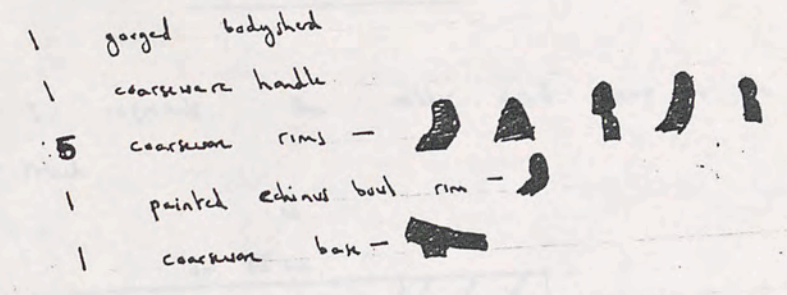 1 gorged bodysherd
1 coarseware handle
5 coarseware rims -
1 painted echinus bowl rim -
1 coarseware base -